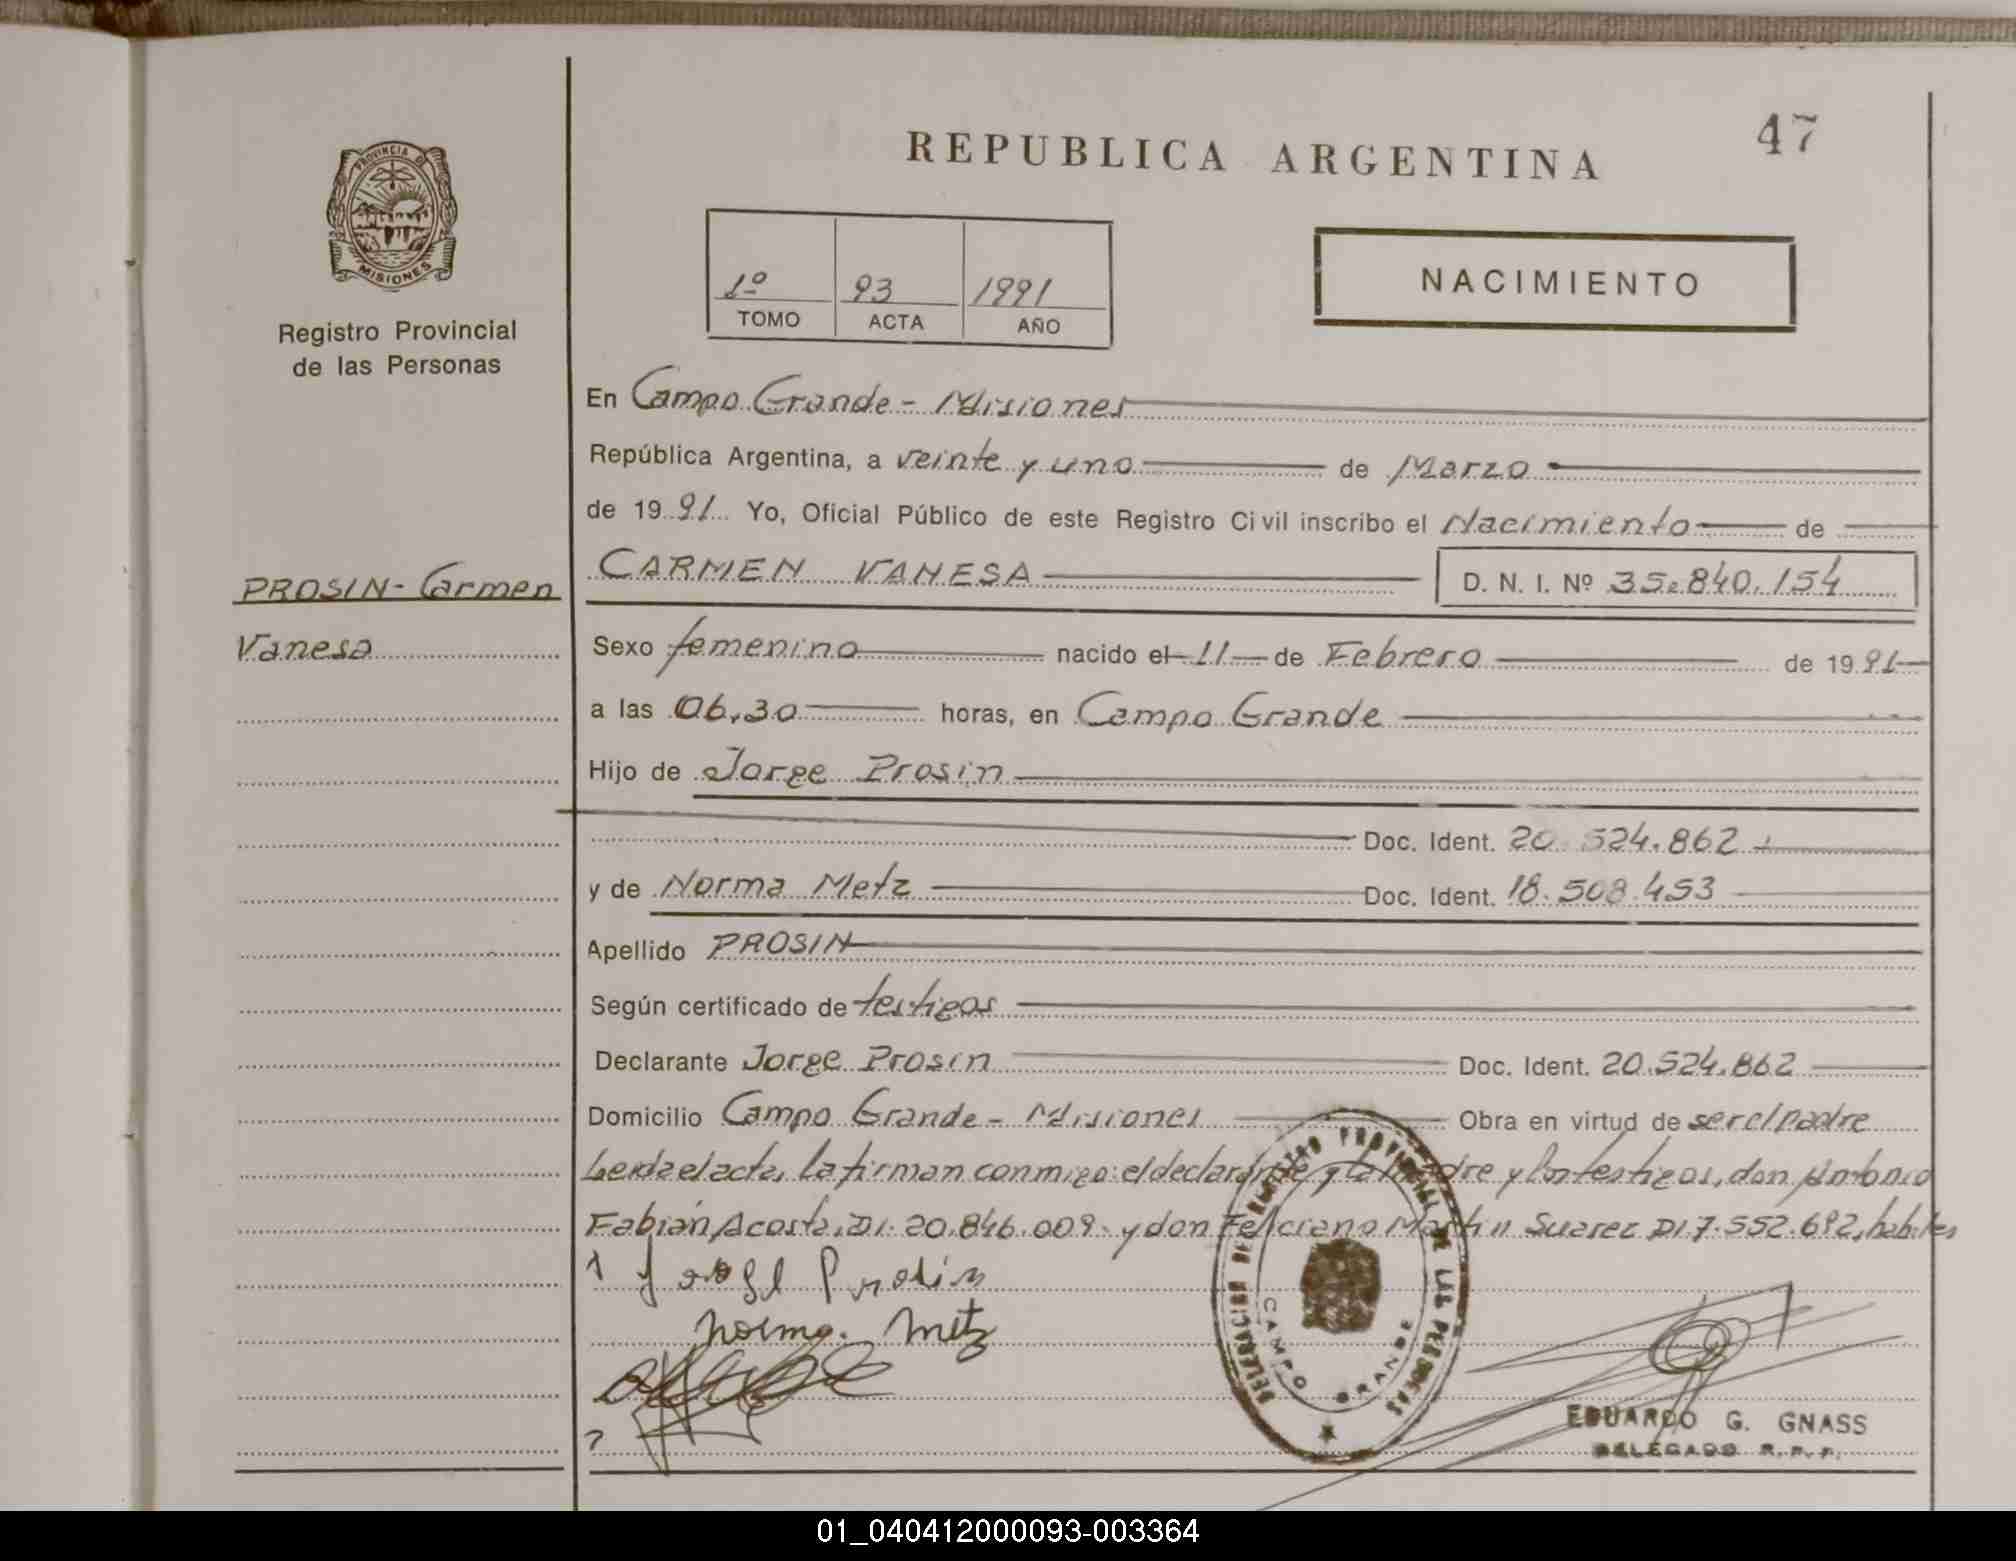 REPUBLICA ARGENTINA
47
PROVINCIA DE
MISIONES
Registro Provincial
de las Personas
1º 93 1991
TOMO ACTA AÑO
NACIMIENTO
En Campo Grande - Misiones
República Argentina, a veinte y uno de Marzo
de 1991 Yo, Oficial Público de este Registro Civil inscribo el Nacimiento de
PROSIN - Carmen
Vanesa
CARMEN VANESA D. N. I. Nº 35.840.154
Sexo femenino nacido el 11 de Febrero de 1991
a las 06,30 horas, en Campo Grande
Hijo de Jorge Prosin
Doc. Ident. 20.524.862
y de Norma Metz Doc. Ident. 18.508.453
Apellido PROSIN
Según certificado de testigos
Declarante Jorge Prosin Doc. Ident. 20.524.862
Domicilio Campo Grande - Misiones Obra en virtud de ser el padre
Leida el acta, la firman conmigo: el declarante y la madre y los testigos, don Antonio
Fabián Acosta, DI. 20.846.009 y don Feliciano Martin Suarez DI 7.552.692, habiles
Jorge Prosin
Norma. Metz
DELEGACION DEL REGISTRO PROVINCIAL DE LAS PERSONAS
CAMPO GRANDE
EDUARDO G. GNASS
DELEGADO R.P.P.
01_040412000093-003364